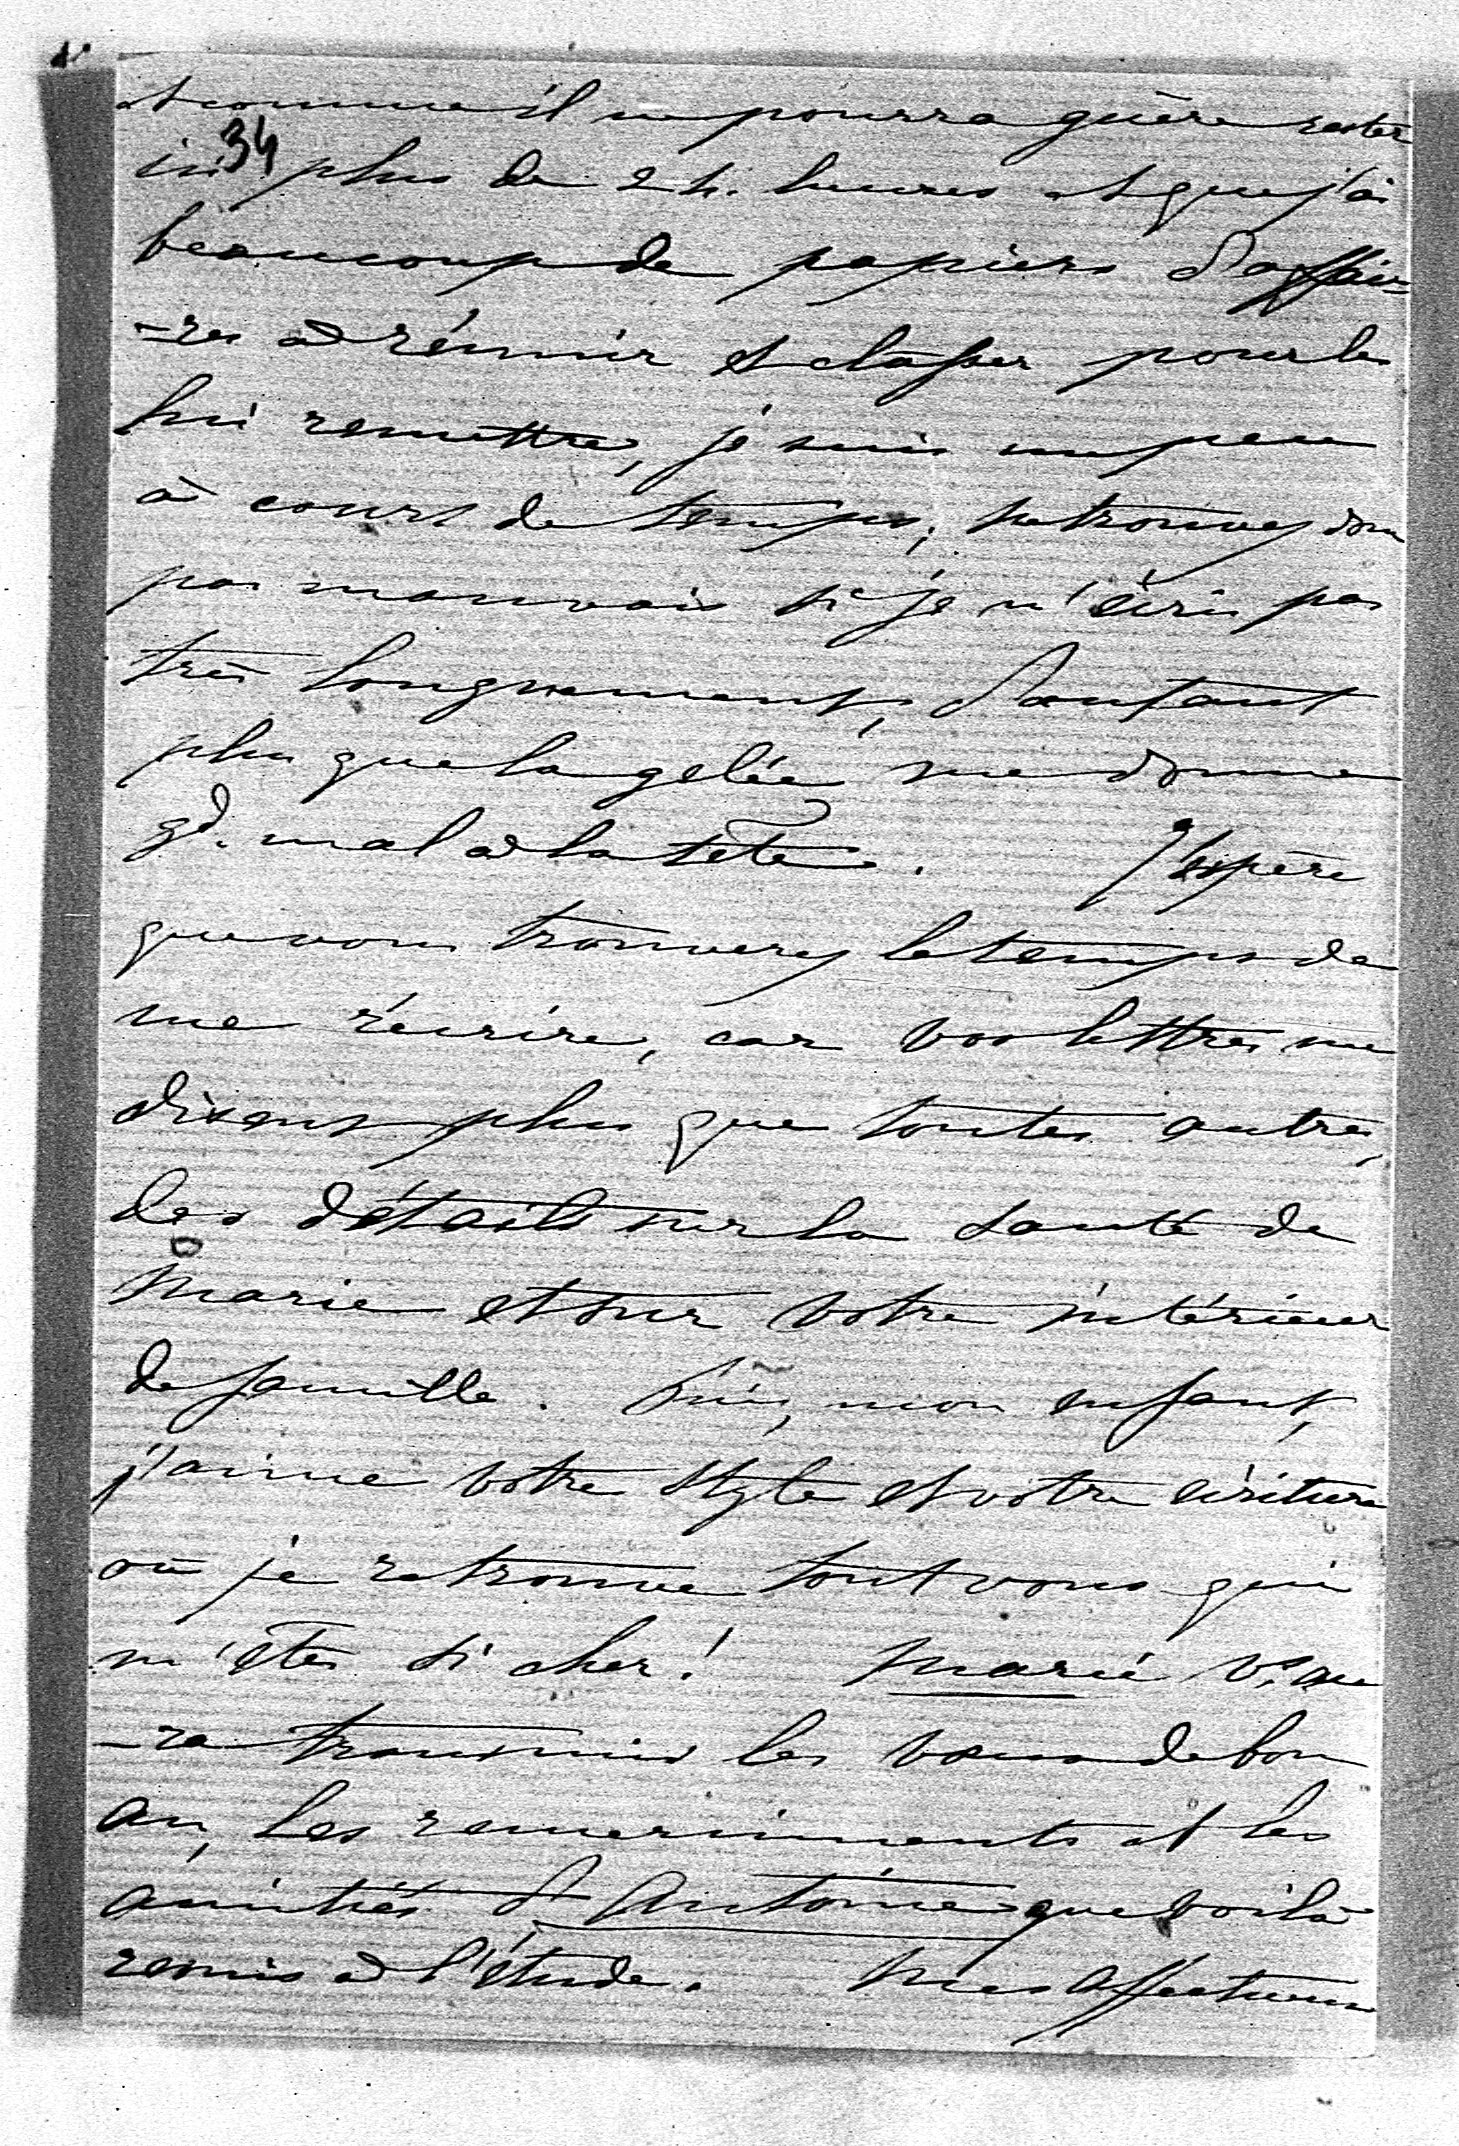 et comme il ne pourra guère rester
34
ici plus de 24 heures et que j'ai
beaucoup de papiers d'affai-
-res à réunir et classer pour les
lui remettre, je suis un peu
à court de temps; ne trouvez donc
pas mauvais si je n'écris pas
très longuement, d'autant
plus que la gelée me donne
gd. mal à la tête. J'espère
que vous trouverez le temps de
me récrire, car vos lettres me
disent plus que toutes autres,
des détails sur la santé de
Marie et sur votre intérieur
de famille. Puis, mon enfant,
j'aime votre style et votre écriture
où je retrouve tout vous qui
m'êtes si cher! Marie v. au
-ra transmis les vœux de bon
an, les remerciments et les
amitiés d'Antoine que voilà
remis à l'étude. Mes affectueux